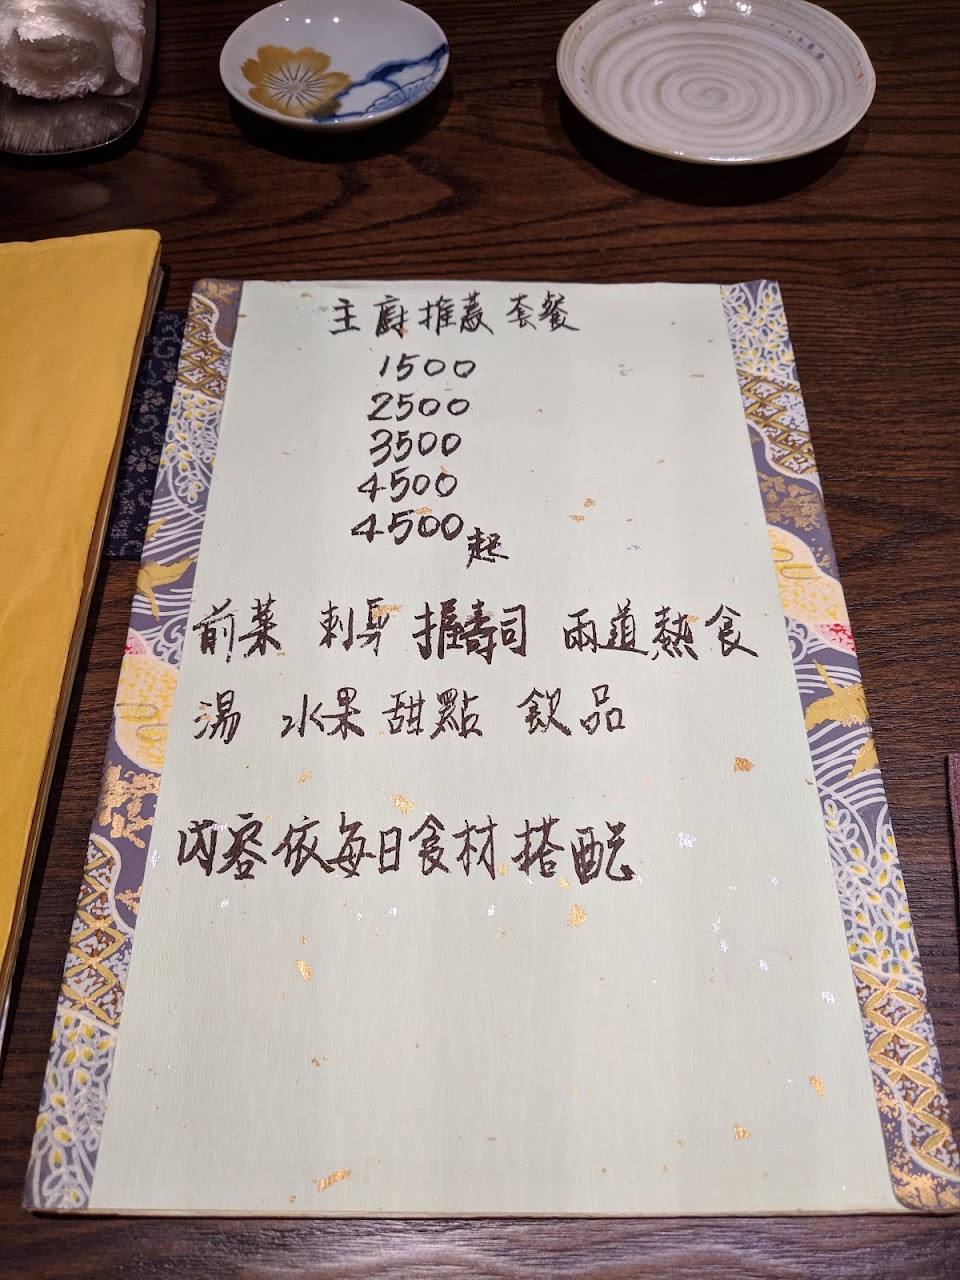 主廚推薦套餐
1500
2500
3500
4500
4500起
前菜 刺身 握壽司 兩道熱食
湯 水果 甜點 飲品
內容依每日食材搭配